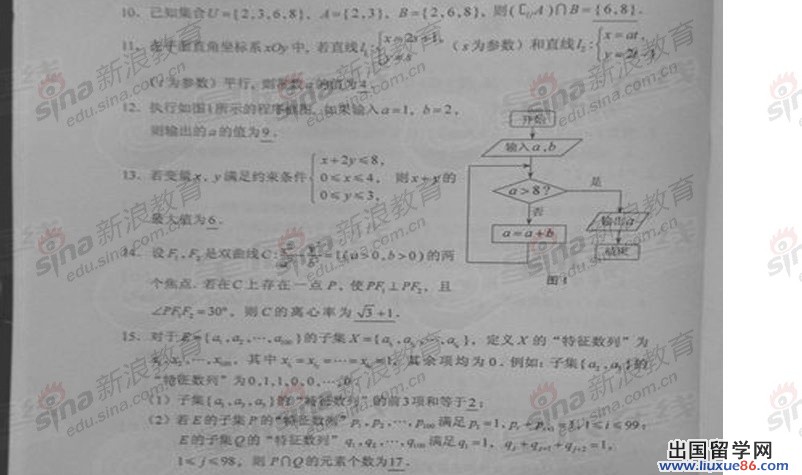 10. 已知集合U={2,3,6,8}, A={2,3}, B={2,6,8}, 则(∁UA)∩B={6,8}.
11. 在平面直角坐标系xOy中, 若直线l₁:{x=2s+1, y=s (s为参数) 和直线l₂:{x=at, y=2t-1
(t为参数) 平行, 则常数a的值为4.
12. 执行如图1所示的程序框图, 如果输入a=1, b=2,
则输出的a的值为9.
13. 若变量x, y满足约束条件{x+2y≤8, 0≤x≤4, 0≤y≤3, 则x+y的
最大值为6.
开始
输入a,b
a>8?
是
否
a=a+b
输出a
结束
图1
14. 设F₁, F₂是双曲线C: x²/a²-y²/b²=1(a>0,b>0)的两
个焦点. 若在C上存在一点P, 使PF₁⊥PF₂, 且
∠PF₁F₂=30°, 则C的离心率为√3+1.
15. 对于E={a₁,a₂,⋯,a₁₀₀}的子集X={
}, 定义X的“特征数列”为
x₁,x₂,⋯,x₁₀₀, 其中
=1, 其余项均为0. 例如: 子集{a₂,a₃}的
“特征数列”为0,1,1,0,0,⋯,0
(1) 子集{a₁,a₃,a₅}的“特征数列”的前3项和等于2;
(2) 若E的子集P的“特征数列” p₁,p₂,⋯,p₁₀₀满足p₁=1, pᵢ+pᵢ₊₁=1, 1≤i≤99;
E的子集Q的“特征数列” q₁,q₂,⋯,q₁₀₀满足q₁=1, qⱼ+qⱼ₊₁+qⱼ₊₂=1,
1≤j≤98, 则P∩Q的元素个数为17.
sina新浪教育
edu.sina.com.cn
出国留学网
www.liuxue86.com